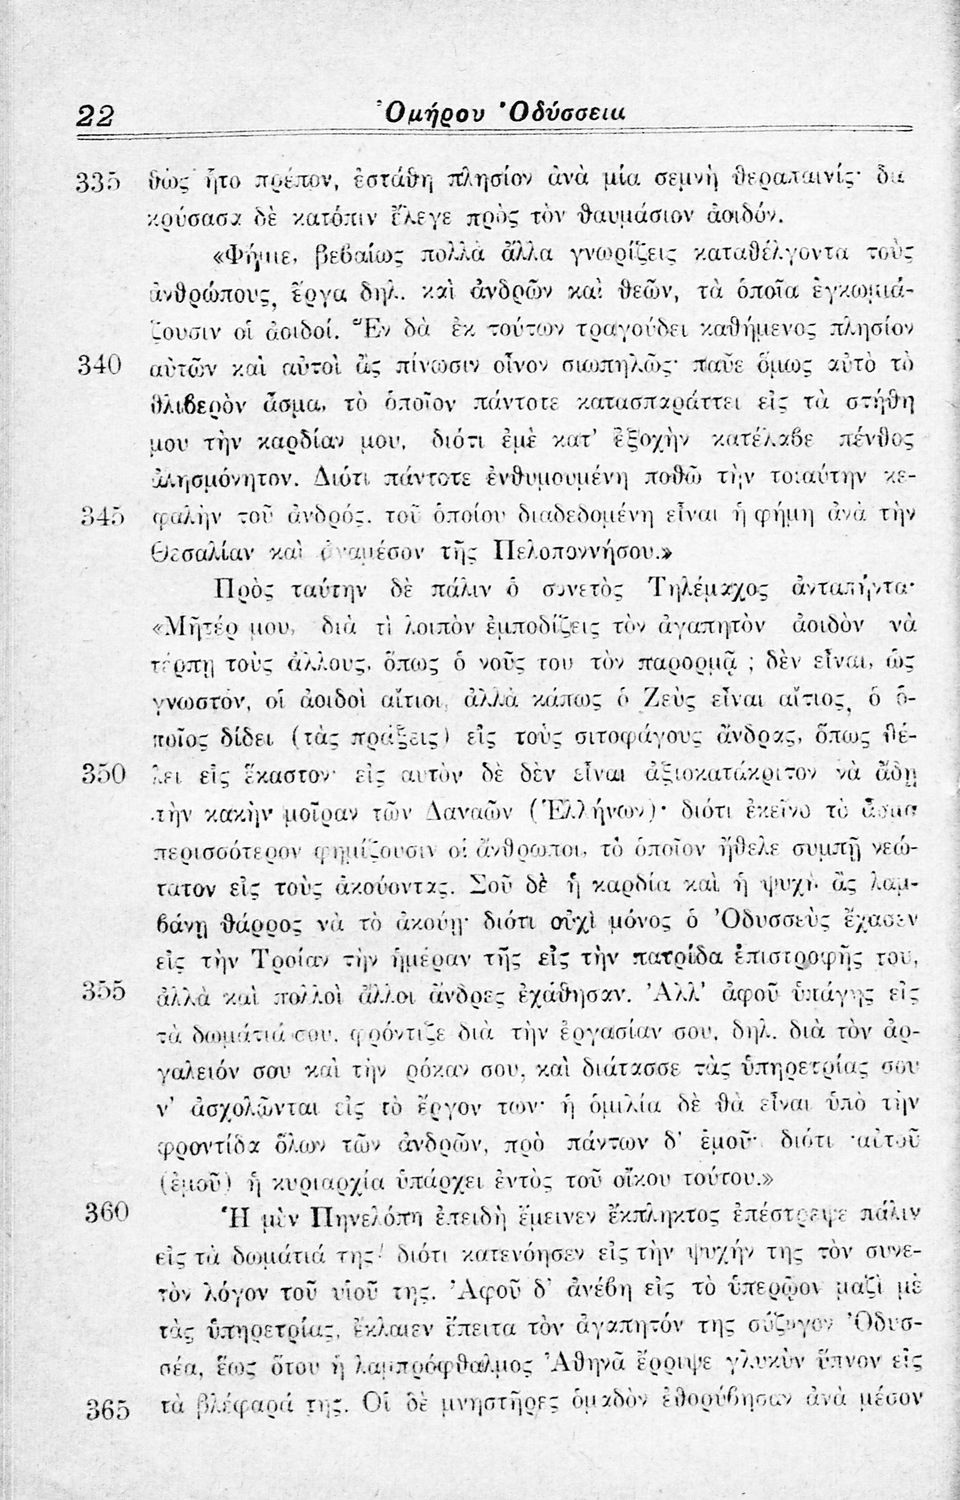 22 Ὁμήρου Ὀδύσσεια
335 θὼς ἦτο πρέπον, ἐστάθη πλησίον ἀνὰ μία σεμνὴ θεραπαινίς· δα
κρύσασα δὲ κατόπιν ἔλεγε πρὸς τὸν θαυμάσιον ἀοιδόν.
«Φήμιε, βεβαίως πολλὰ ἄλλα γνωρίζεις καταθέλγοντα τοὺς
ἀνθρώπους, ἔργα δηλ. καὶ ἀνδρῶν καὶ θεῶν, τὰ ὁποῖα ἐγκωμιά-
ζουσιν οἱ ἀοιδοί. Ἓν δὰ ἐκ τούτων τραγούδει καθήμενος πλησίον
340 αὐτῶν καὶ αὐτοὶ ἂς πίνωσιν οἶνον σιωπηλῶς· παῦε ὅμως αὐτὸ τὸ
θλιβερὸν ἆσμα, τὸ ὁποῖον πάντοτε κατασπαράττει εἰς τὰ στήθη
μου τὴν καρδίαν μου, διότι ἐμὲ κατ' ἐξοχὴν κατέλαβε πένθος
ἀλησμόνητον. Διότι πάντοτε ἐνθυμουμένη ποθῶ τὴν τοιαύτην κε-
345 φαλὴν τοῦ ἀνδρός. τοῦ ὁποίου διαδεδομένη εἶναι ἡ φήμη ἀνὰ τὴν
Θεσαλίαν καὶ ἀναμέσον τῆς Πελοποννήσου.»
Πρὸς ταύτην δὲ πάλιν ὁ συνετὸς Τηλέμαχος ἀνταπήντα·
«Μῆτέρ μου, διὰ τὶ λοιπὸν ἐμποδίζεις τὸν ἀγαπητὸν ἀοιδὸν νὰ
τέρπῃ τοὺς ἄλλους, ὅπως ὁ νοῦς του τὸν παρορμᾷ ; δὲν εἶναι, ὡς
γνωστόν, οἱ ἀοιδοὶ αἴτιοι, ἀλλὰ κάπως ὁ Ζεὺς εἶναι αἴτιος, ὁ ὁ-
ποῖος δίδει (τὰς πράξεις) εἰς τοὺς σιτοφάγους ἄνδρας, ὅπως θέ-
350 λει εἰς ἕκαστον· εἰς αὐτὸν δὲ δὲν εἶναι ἀξιοκατάκριτον νὰ ᾄδῃ
τὴν κακὴν μοῖραν τῶν Δαναῶν (Ἑλλήνων)· διότι ἐκεῖνο τὸ ἆσμα
περισσότερον φημίζουσιν οἱ ἄνθρωποι, τὸ ὁποῖον ἤθελε συμπῇ νεώ-
τατον εἰς τοὺς ἀκούοντας. Σοῦ δὲ ἡ καρδία καὶ ἡ ψυχὴ ἂς λαμ-
βάνῃ θάρρος νὰ τὸ ἀκούῃ· διότι οὐχὶ μόνος ὁ Ὀδυσσεὺς ἔχασεν
εἰς τὴν Τροίαν τὴν ἡμέραν τῆς εἰς τὴν πατρίδα ἐπιστροφῆς του,
355 ἀλλὰ καὶ πολλοὶ ἄλλοι ἄνδρες ἐχάθησαν. Ἀλλ' ἀφοῦ ὑπάγῃς εἰς
τὰ δωμάτιά σου, φρόντιζε διὰ τὴν ἐργασίαν σου, δηλ. διὰ τὸν ἀρ-
γαλειόν σου καὶ τὴν ρόκαν σου, καὶ διάτασσε τὰς ὑπηρετρίας σου
ν' ἀσχολῶνται εἰς τὸ ἔργον των· ἡ ὁμιλία δὲ θὰ εἶναι ὑπὸ τὴν
φροντίδα ὅλων τῶν ἀνδρῶν, πρὸ πάντων δ' ἐμοῦ· διότι αὐτοῦ
(ἐμοῦ) ἡ κυριαρχία ὑπάρχει ἐντὸς τοῦ οἴκου τούτου.»
360 Ἡ μὲν Πηνελόπη ἐπειδὴ ἔμεινεν ἔκπληκτος ἐπέστρεψε πάλιν
εἰς τὰ δωμάτιά της· διότι κατενόησεν εἰς τὴν ψυχήν της τὸν συνε-
τὸν λόγον τοῦ υἱοῦ της. Ἀφοῦ δ' ἀνέβη εἰς τὸ ὑπερῷον μαζὶ μὲ
τὰς ὑπηρετρίας, ἔκλαιεν ἔπειτα τὸν ἀγαπητόν της σύζυγον Ὀδυσ-
σέα, ἕως ὅτου ἡ λαμπρόφθαλμος Ἀθηνᾶ ἔρριψε γλυκὺν ὕπνον εἰς
365 τὰ βλέφαρά της. Οἱ δὲ μνηστῆρες ὁμαδὸν ἐθορύβησαν ἀνὰ μέσον